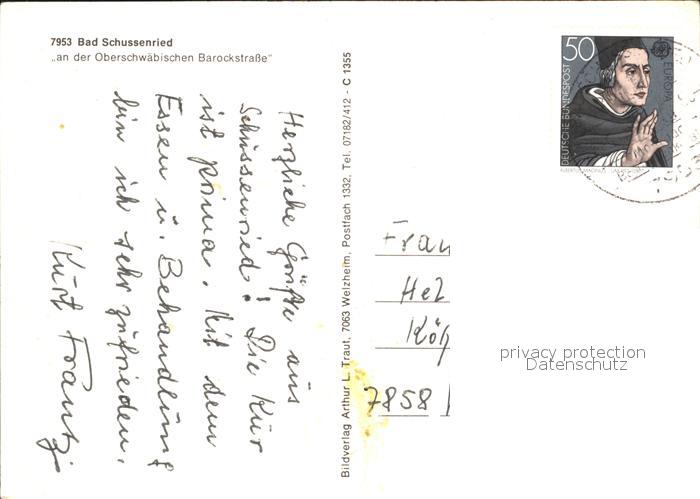 7953 Bad Schussenried
„an der Oberschwäbischen Barockstraße"
Herzliche Grüße aus
Schussenried! Die Kur
ist prima. Mit dem
Essen u. Behandlung
bin ich sehr zufrieden.
Kurt Frantz
Bildverlag Arthur L. Traut, 7063 Welzheim, Postfach 1332, Tel. 07182/412 - C 1355
50
DEUTSCHE BUNDESPOST
EUROPA
ALBERTUS MAGNUS
Frau
Hel
Köh
7858
privacy protection
Datenschutz